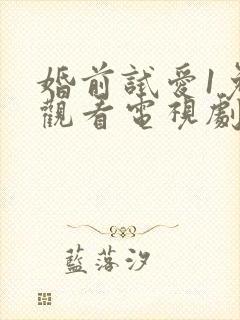 婚前試愛1
觀看電視劇
藍落汐